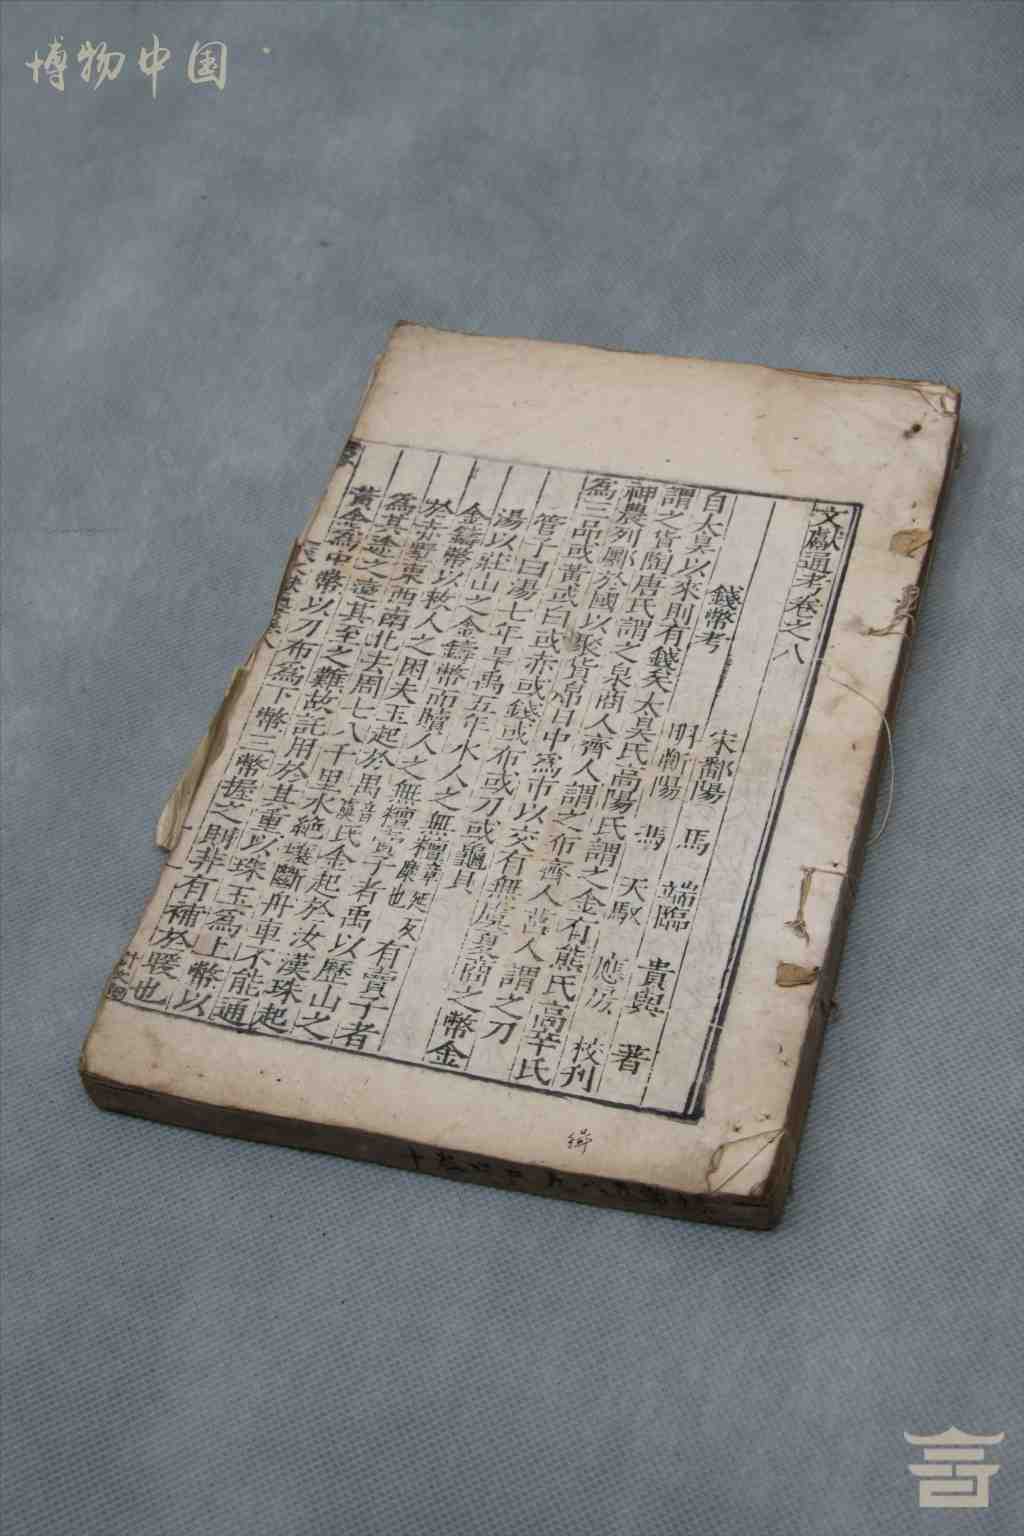 文獻通考卷之八
宋鄱陽 馬 端臨 貴與 著
明衡陽 馮 天馭 應房 校刊
錢幣考
自太昊以來則有錢矣太昊氏高陽氏謂之金有熊氏高辛氏
謂之貨陶唐氏謂之泉商人齊人謂之布齊人莒人謂之刀
神農列廛於國以聚貨帛日中為市以交有無虞夏商之幣金
為三品或黃或白或赤或錢或布或刀或龜貝
管子曰湯七年旱禹五年水人之無䊤章延反糜也有賣子者
湯以莊山之金鑄幣而贖人之無䊤賣子者禹以歷山之
金鑄幣以救人之困夫玉起於禺音虞氏金起於汝漢珠起
於赤野東西南北去周七八千里水絕壤斷舟車不能通
為其途之遠其至之難故託用於其重以珠玉為上幣以
黃金為中幣以刀布為下幣三幣握之則非有補於暖也
博物中国